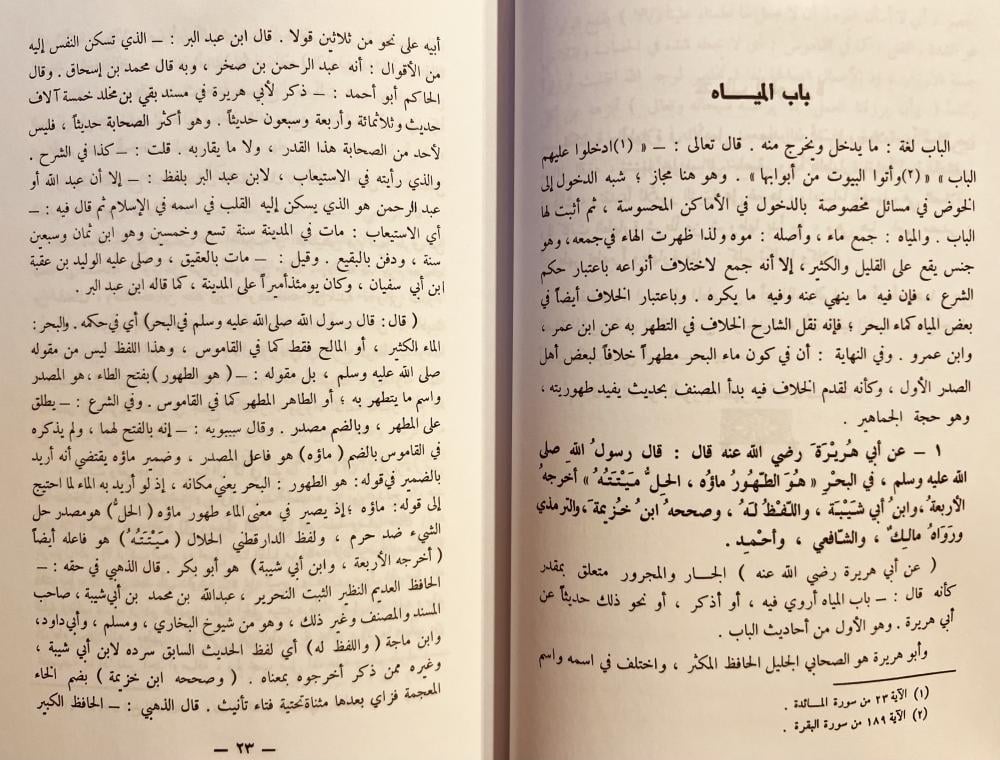 باب الميـــاه
الباب لغة : ما يدخل ويخرج منه . قال تعالى : — « (١)ادخلوا عليهم
الباب » « (٢)وأتوا البيوت من أبوابها » . وهو هنا مجاز ؛ شبه الدخول إلى
الخوض في مسائل مخصوصة بالدخول في الأماكن المحسوسة ، ثم أثبت لها
الباب . والمياه : جمع ماء ، وأصله : موه ولذا ظهرت الهاء في جمعه، وهو
جنس يقع على القليل والكثير، إلا أنه جمع لاختلاف أنواعه باعتبار حكم
الشرع ، فإن فيه ما ينهي عنه وفيه ما يكره . وباعتبار الخلاف أيضاً في
بعض المياه كماء البحر ؛ فإنه نقل الشارح الخلاف في التطهر به عن ابن عمر ،
وابن عمرو . وفي النهاية : أن في كون ماء البحر مطهراً خلافاً لبعض أهل
الصدر الأول ، وكأنه لقدم الخلاف فيه بدأ المصنف بحديث يفيد طهوريته ،
وهو حجة الجماهير .
١ – عن أبي هُرِيْرَةَ رضي الله عنه قال : قال رسولُ اللهِ صلى
الله عليه وسلم ، في البحْرِ « هُوَ الطّهُورُ ماؤُه ، الحلُّ مَيْتَتُهُ » أخرجهُ
الأربعةُ، وابنُ أبي شَيْبَةَ ، واللفظُ لهُ ، وصححه ابنُ خُزيمةَ، والترمذي
ورَوَاهُ مالِكٌ ، والشّافعي ، وأحْمد .
( عن أبي هريرة رضي الله عنه ) الجـار والمجرور متعلق بمقدر
كأنه قال : — باب المياه أروي فيه ، أو أذكر ، أو نحو ذلك حديثاً عن
أبي هريرة . وهو الأول من أحاديث الباب .
وأبو هريرة هو الصحابي الجليل الحافظ المكثر ، واختلف في اسمه واسم
(١) الآية ٢٣ من سورة المـائدة .
(٢) الآية ١٨٩ من سورة البقرة .
أبيه على نحو من ثلاثين قولا . قال ابن عبد البر : — الذي تسكن النفس إليه
من الأقوال : أنه عبد الرحمن بن صخر ، وبه قال محمد بن إسحاق . وقال
الحاكم أبو أحمد : — ذكر لأبي هريرة في مسند بقي بن مخلد خمسة آلاف
حديث وثلاثمائة وأربعة وسبعون حديثاً . وهو أكثر الصحابة حديثاً ، فليس
لأحد من الصحابة هذا القدر ، ولا ما يقاربه . قلت : — كذا في الشرح .
والذي رأيته في الاستيعاب ، لابن عبد البر بلفظ : — إلا أن عبد الله أو
عبد الرحمن هو الذي يسكن إليه القلب في اسمه في الإسلام ثم قال فيه : —
أي الاستيعاب : مات في المدينة سنة تسع وخمسين وهو ابن ثمان وسبعين
سنة ، ودفن بالبقيع . وقيل : — مات بالعقيق ، وصلى عليه الوليد بن عقبة
ابن أبي سفيان ، وكان يومئذ أميراً على المدينة ، كما قاله ابن عبد البر .
( قال : قال رسول الله صلى الله عليه وسلم في البحر) أي في حكمه . والبحر :
الماء الكثير ، أو المالح فقط كما في القاموس ، وهذا اللفظ ليس من مقوله
صلى الله عليه وسلم ، بل مقوله : — ( هو الطهور ) بفتح الطاء ، هو المصدر
واسم ما يتطهر به ؛ أو الطاهر المطهر كما في القاموس . وفي الشرع : — يطلق
على المطهر ، وبالضم مصدر . وقال سيبويه : — إنه بالفتح لهما ، ولم يذكره
في القاموس بالضم (ماؤه) هو فاعل المصدر ، وضمير ماؤه يقتضي أنه أريد
بالضمير في قوله : هو الطهور : البحر يعني مكانه ، إذ لو أريد به الماء لما احتيج
إلى قوله : ماؤه ؛ إذ يصير في معنى الماء طهور ماؤه ( الحلُّ ) هو مصدر حل
الشيء ضد حرم ، ولفظ الدارقطني الحلال ( مَيْتَتُهُ ) هو فاعله أيضاً
( أخرجه الأربعة ، وابن أبي شيبة ) هو أبو بكر . قال الذهبي في حقه : —
الحافظ العديم النظير الثبت النحرير ، عبدالله بن محمد بن أبي شيبة ، صاحب
المسند والمصنف وغير ذلك ، وهو من شيوخ البخاري ، ومسلم ، وأبي داود،
وابن ماجة ( واللفظ له ) أي لفظ الحديث السابق سرده لابن أبي شيبة ،
وغيره ممن ذكر أخرجوه بمعناه . ( وصححه ابن خزيمة ) بضم الخاء
المعجمة فزاي بعدها مثناة تحتية فتاء تأنيث . قال الذهبي : — الحافظ الكبير
— ٢٣ —